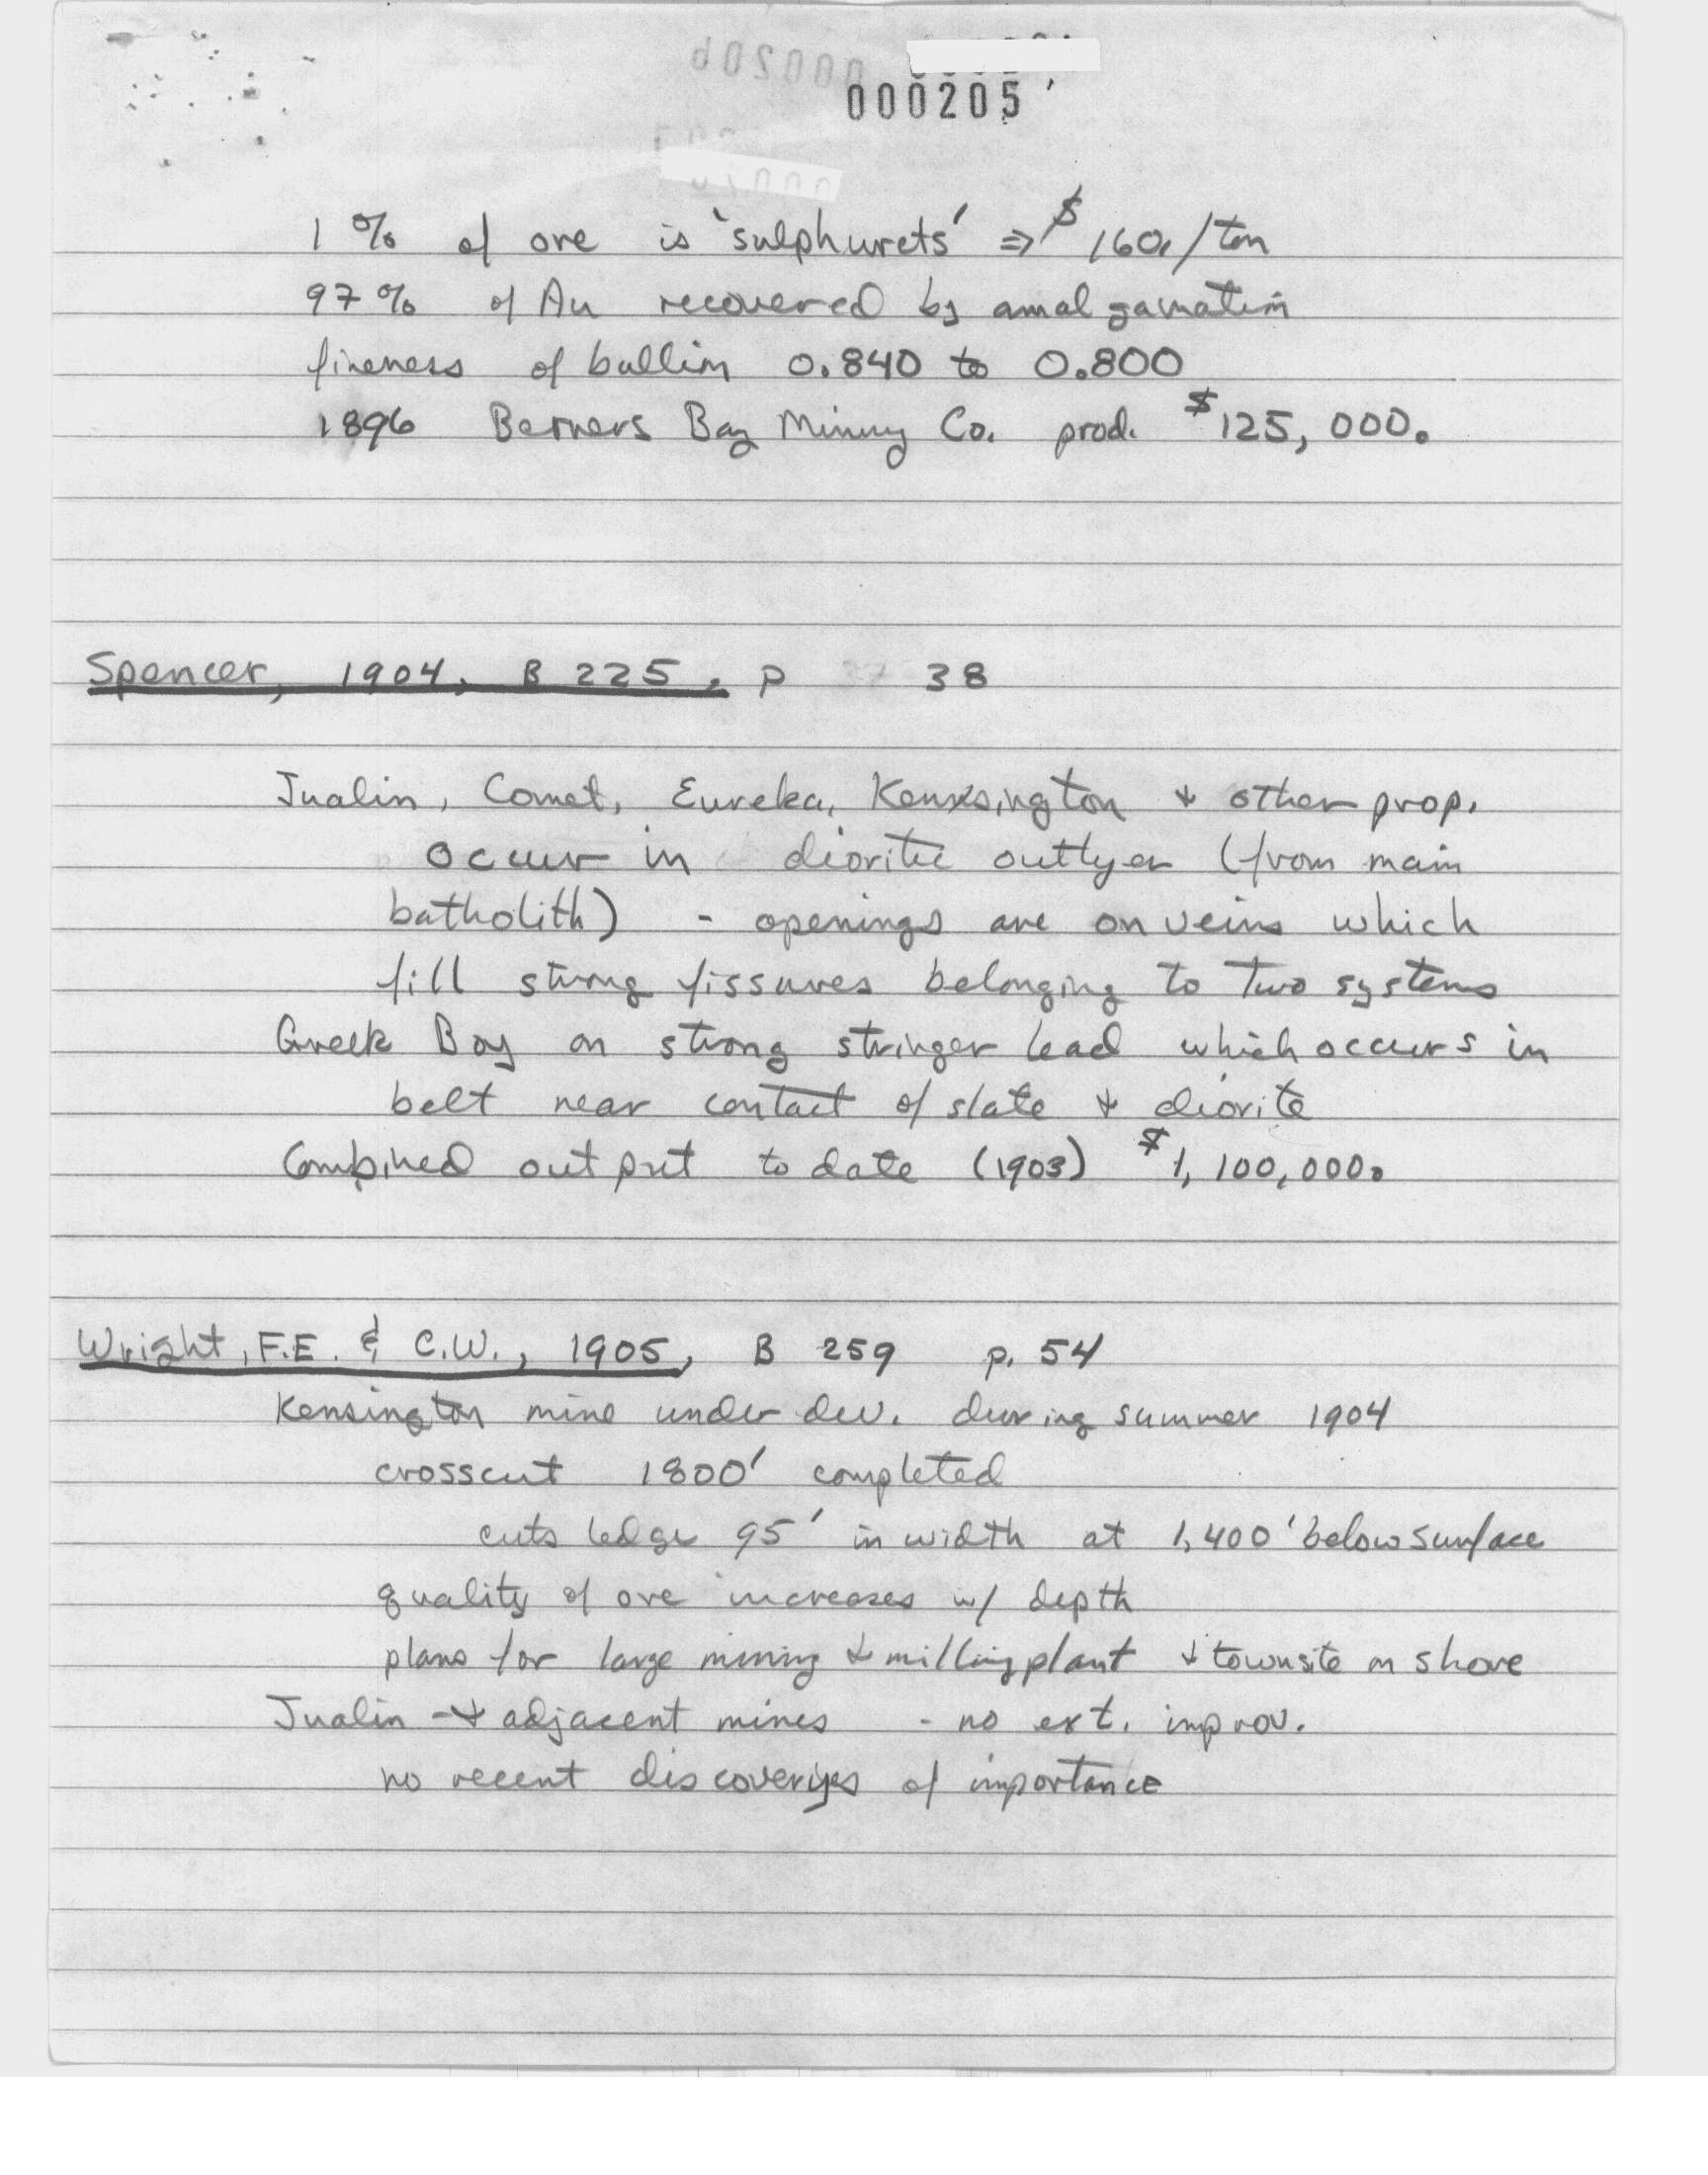 000205
1 % of ore is 'sulphurets' ⇒ $160./ton
97 % of Au recovered by amalgamation
fineness of bullion 0.840 to 0.800
1896 Berners Bay Mining Co. prod. $125,000.
Spencer, 1904, B 225, p 38
Jualin, Comet, Eureka, Kensington & other prop.
occur in dioritic outlyer (from main
batholith) - openings are on veins which
fill strong fissures belonging to two systems
Greek Boy on strong stringer lead which occurs in
belt near contact of slate & diorite
Combined output to date (1903) $1,100,000.
Wright, F.E. & C.W., 1905, B 259 p. 54
Kensington mine under dev. during summer 1904
crosscut 1800' completed
cuts ledge 95' in width at 1,400' below surface
quality of ore increases w/ depth
plans for large mining & milling plant & townsite on shore
Jualin - & adjacent mines - no ext. improv.
no recent discoveries of importance